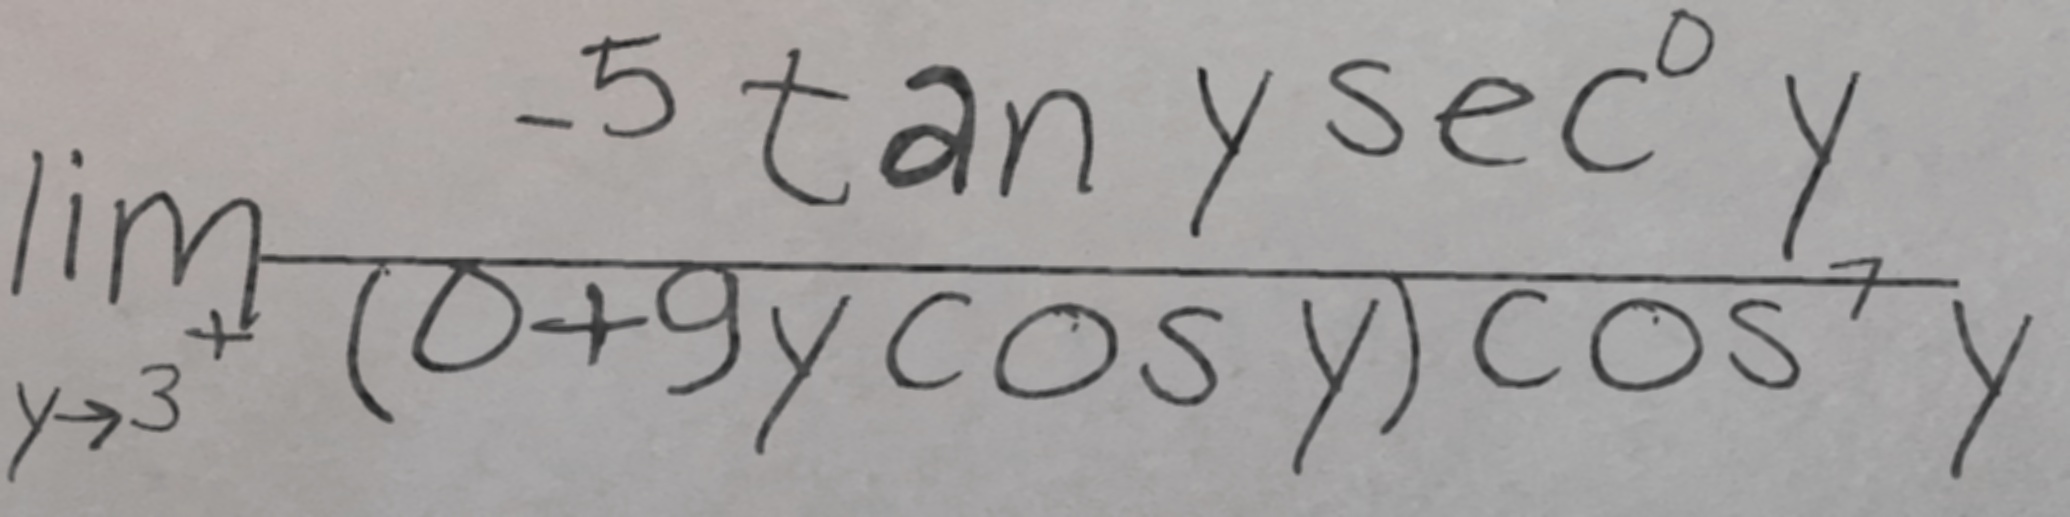 \lim_{y \to 3^+} \frac{-5 \tan y \sec^0 y}{(0+9y \cos y) \cos^7 y}